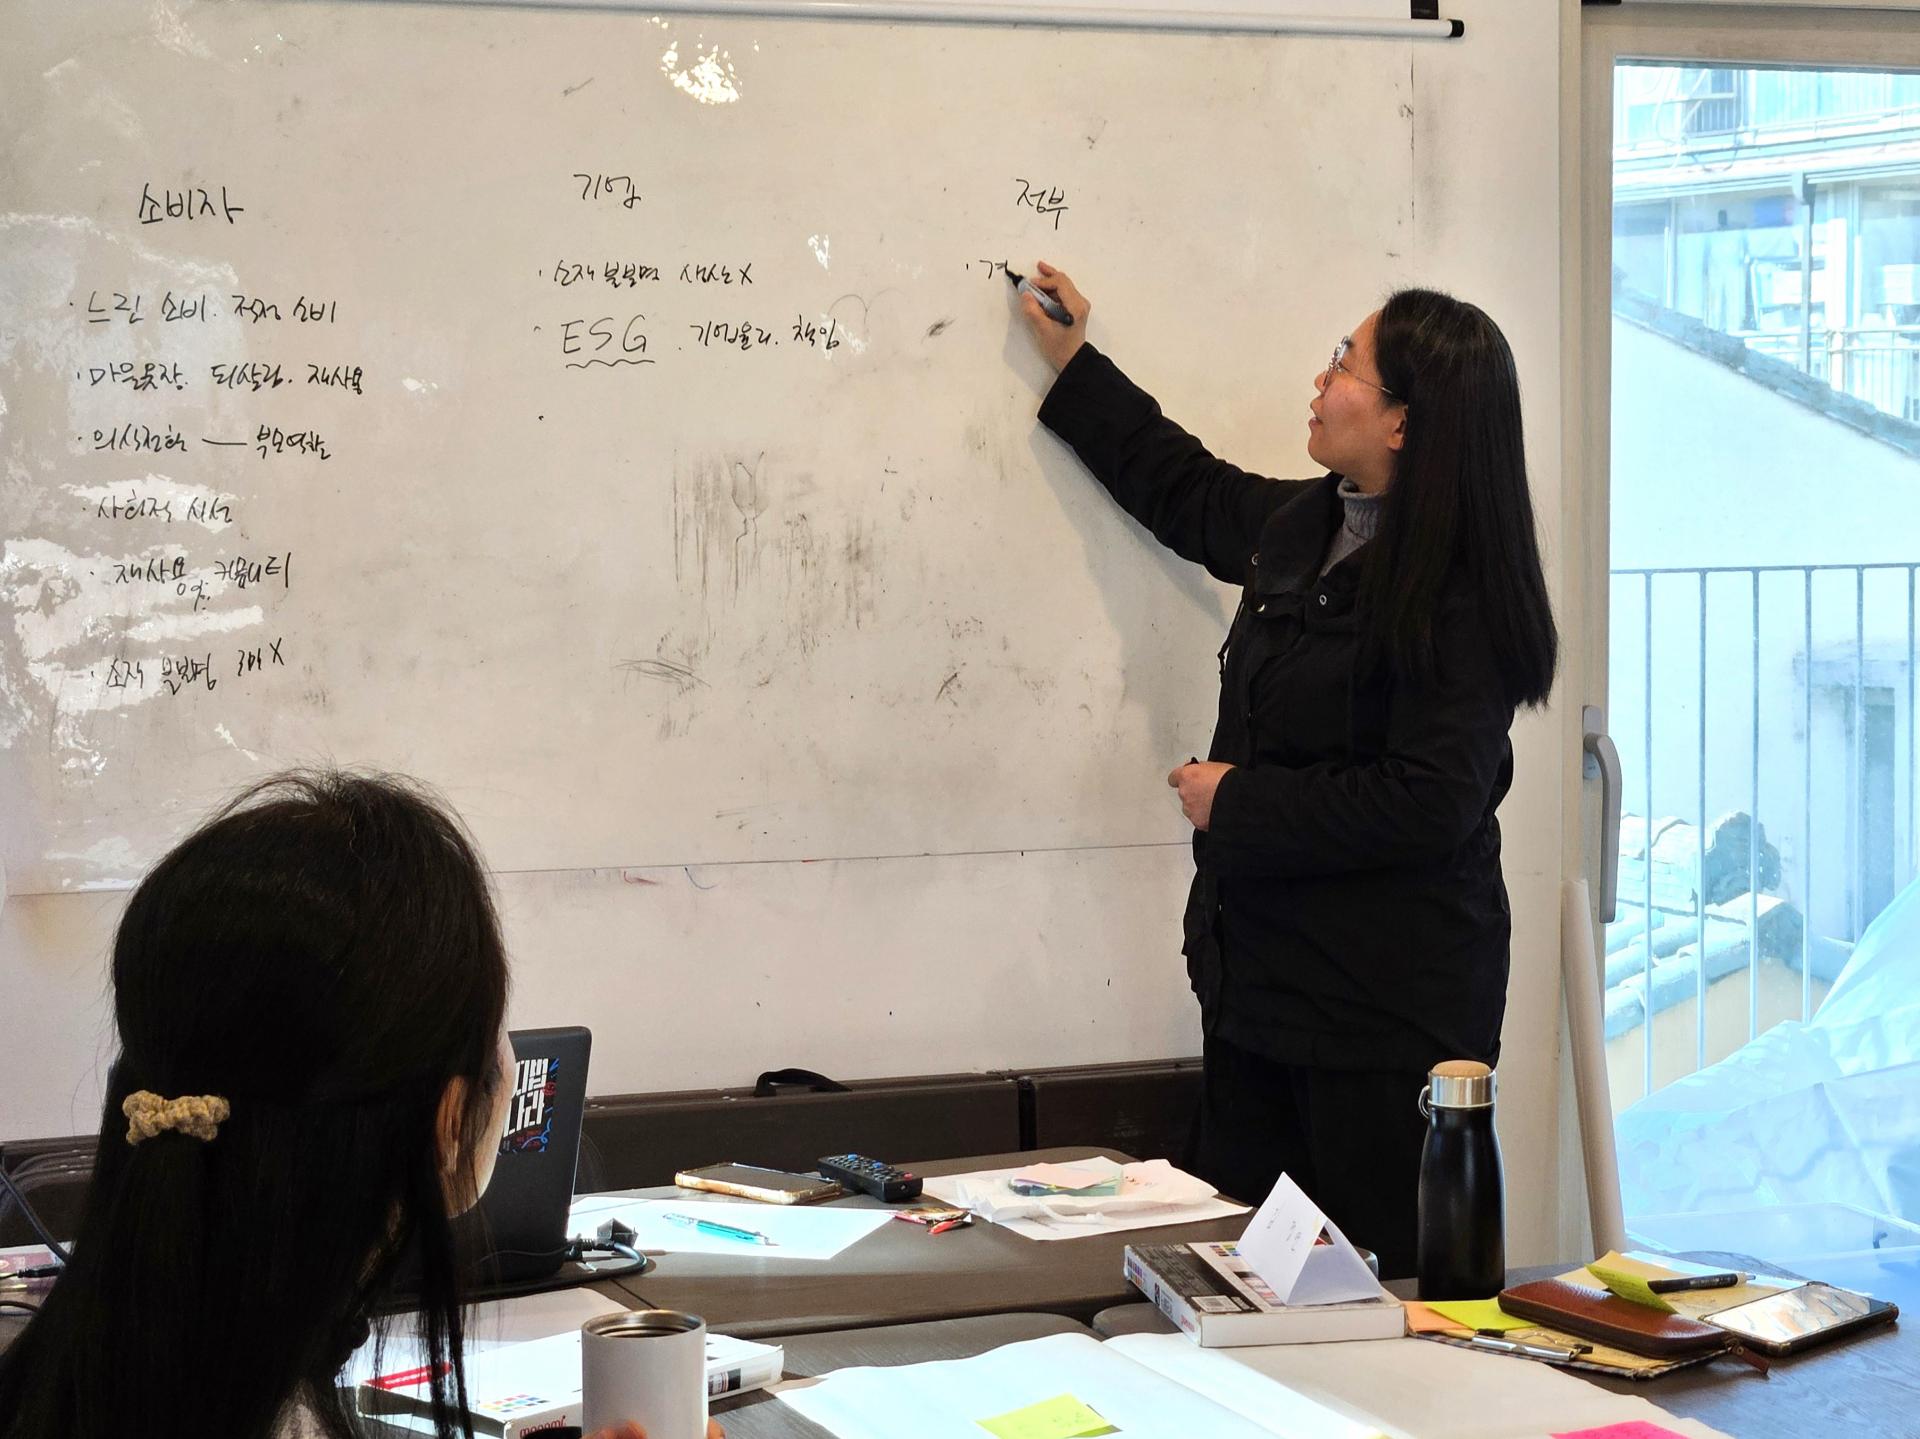 소비자
· 느린 소비. 적정 소비
· 마을옷장. 되살림. 재사용
· 의식전환 — 부모역할
· 사회적 시선
· 재사용 커뮤니티
· 소재 불분명 X
기업
· 소재 불분명 생산 X
· ESG . 기업윤리. 책임
·
정부
·
나라
monami